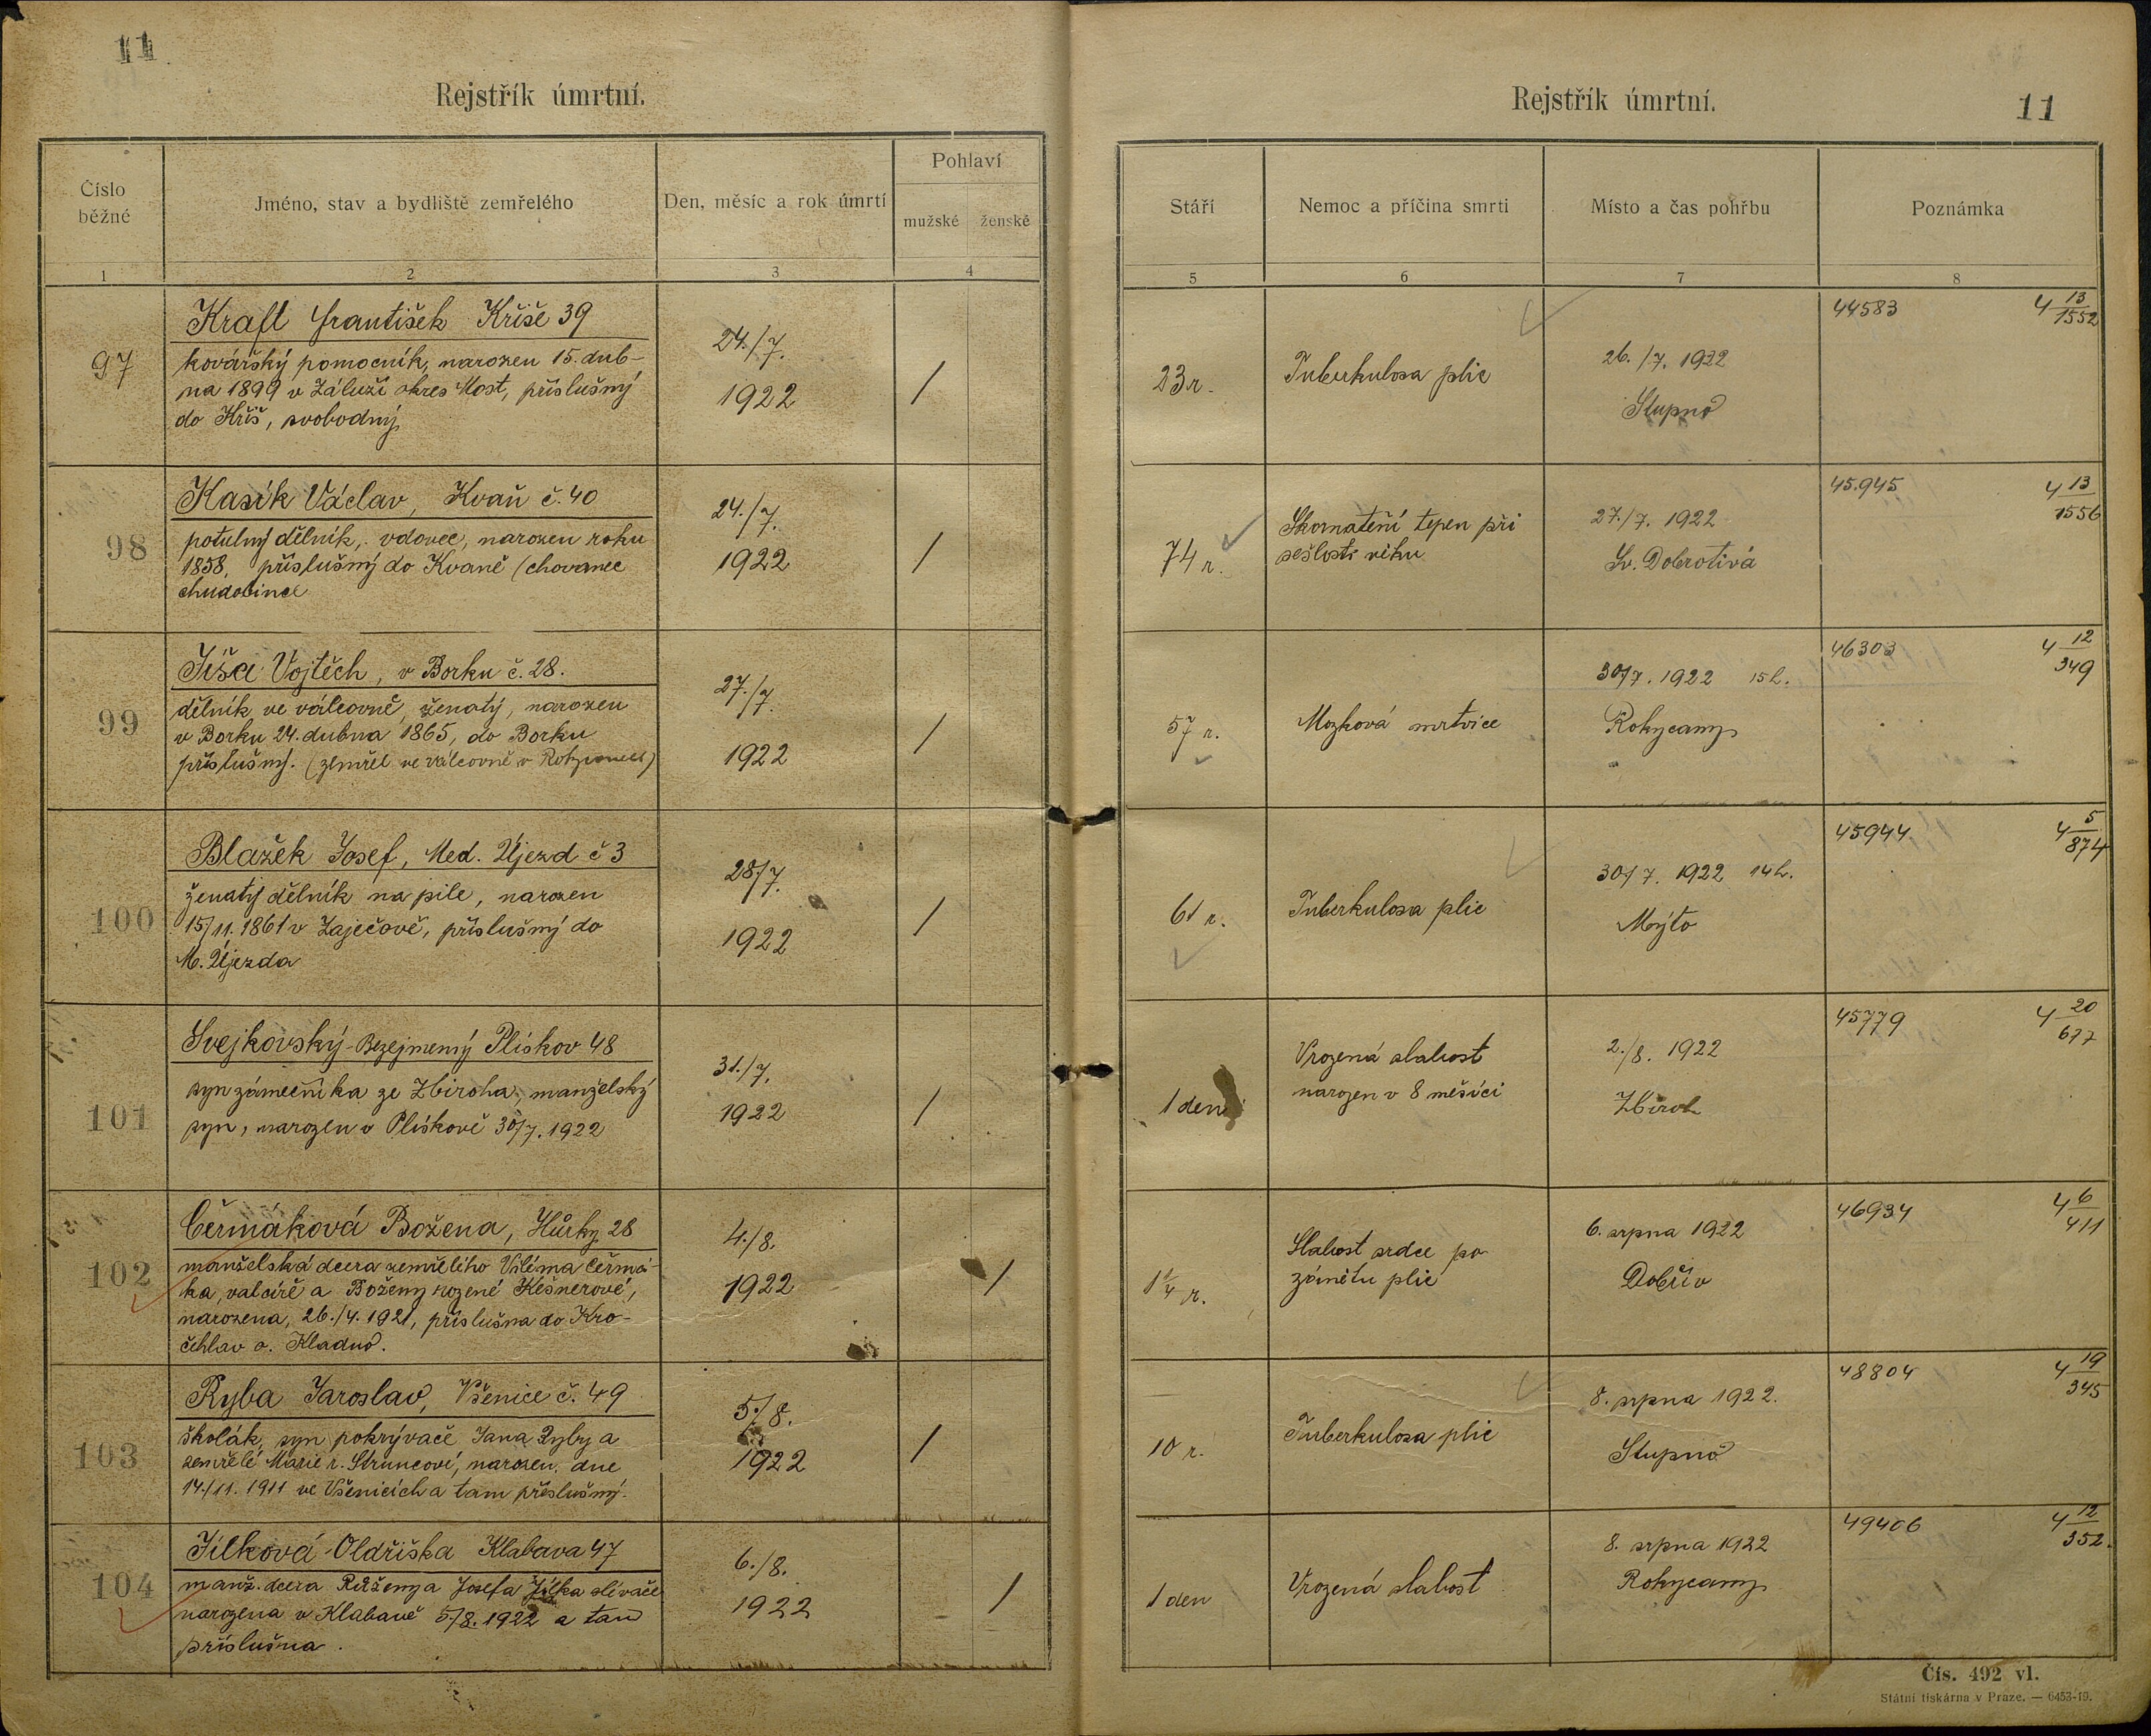 11
Rejstřík úmrtní.
Číslo běžné
Jméno, stav a bydliště zemřelého
Den, měsíc a rok úmrtí
Pohlaví
mužské
ženské
1
2
3
4
97
Krafl František Kříše 39
kovářský pomocník, narozen 15. dub-
na 1899 v Záluží okres Most, příslušný
do Kříš, svobodný
24./7.
1922
/
98
Kasík Václav, Kvaň č. 40
potulný dělník, vdovec, narozen roku
1858, příslušný do Kvaně (chovanec
chudobince
24./7.
1922
/
99
Jíša Vojtěch, v Borku č. 28.
dělník ve válcovně, ženatý, narozen
v Borku 24. dubna 1865, do Borku
příslušný. (zemřel ve válcovně v Rokycanech)
27./7.
1922
/
100
Blažek Josef, Med. Újezd č 3
ženatý dělník na pile, narozen
15/11. 1861 v Zaječově, příslušný do
M. Újezda
28/7.
1922
/
101
Svejkovský-Bezejmenný Plískov 48
syn zámečníka ze Zbiroha, manželský
syn, narozen v Plískově 30/7. 1922
31./7.
1922
/
102
Čermáková Božena, Hůrky 28
manželská dcera zemřelého Viléma Čermá-
ka, valcíře a Boženy rozené Kešnerové,
narozena, 26./4. 1921, příslušna do Kro-
čehlav o. Kladno.
4./8.
1922
/
103
Ryba Jaroslav, Všenice č. 49
školák, syn pokrývače Jana Ryby a
zemřelé Marie r. Struncové, narozen, dne
14./11. 1911 ve Všenicích a tam příslušný.
5./8.
1922
/
104
Jílková Oldřiška Klabava 47
manž. dcera Růženy a Josefa Jílka slévače
narozena v Klabavě 5./8. 1922 a tam
příslušna.
6./8.
1922
/
Rejstřík úmrtní.
11
Stáří
Nemoc a příčina smrti
Místo a čas pohřbu
Poznámka
5
6
7
8
23 r.
Tuberkulosa plic
26./7. 1922
Stupno
44583
4 13/1552
74 r.
Skornatění tepen při
sešlosti věku
27./7. 1922
Sv. Dobrotivá
45.945
4 13/1556
57 r.
Mozková mrtvice
30/7. 1922 15 h.
Rokycany
46303
4 12/349
61 r.
Tuberkulosa plic
30/7. 1922 14 h.
Mýto
45944
4 5/874
1 den
Vrozená slabost
narozen v 8 měsíci
2./8. 1922
Zbiroh
45779
4 20/677
1 1/4 r.
Slabost srdce po
zánětu plic
6. srpna 1922
Dobřív
46934
4 6/411
10 r.
Tuberkulosa plic
8. srpna 1922.
Stupno
48804
4 19/345
1 den
Vrozená slabost
8. srpna 1922
Rokycany
49406
4 12/352.
Čís. 492 vl.
Státní tiskárna v Praze. — 6453-19.